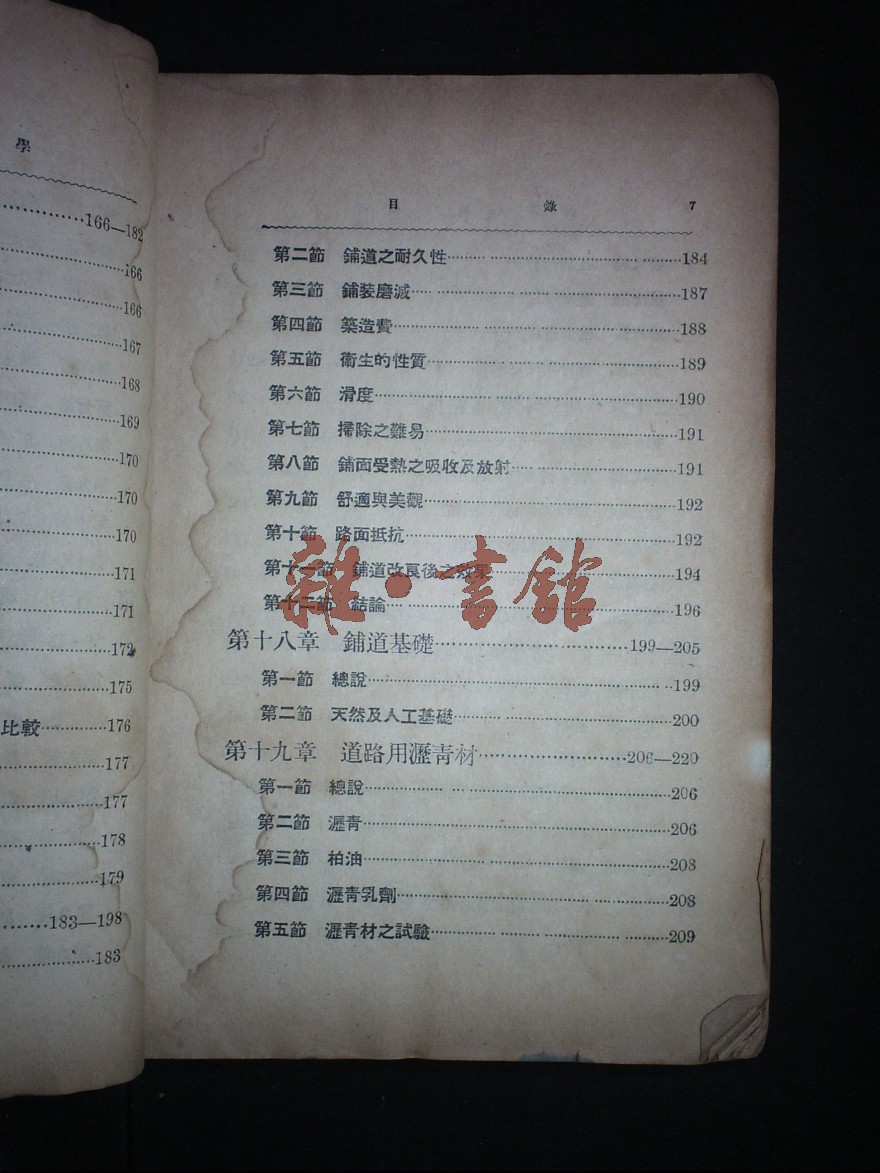 學
166—182
166
166
167
168
169
170
170
170
171
171
172
175
比較 176
177
177
178
179
183—198
183
目 錄 7
第二節 鋪道之耐久性 184
第三節 鋪裝磨滅 187
第四節 築造費 188
第五節 衞生的性質 189
第六節 滑度 190
第七節 掃除之難易 191
第八節 鋪面受熱之吸收及放射 191
第九節 舒適與美觀 192
第十節 路面抵抗 192
第十一節 鋪道改良後之效果 194
第十二節 結論 196
第十八章 鋪道基礎 199—205
第一節 總說 199
第二節 天然及人工基礎 200
第十九章 道路用瀝青材 206—220
第一節 總說 206
第二節 瀝青 206
第三節 柏油 208
第四節 瀝青乳劑 208
第五節 瀝青材之試驗 209
雜·書館